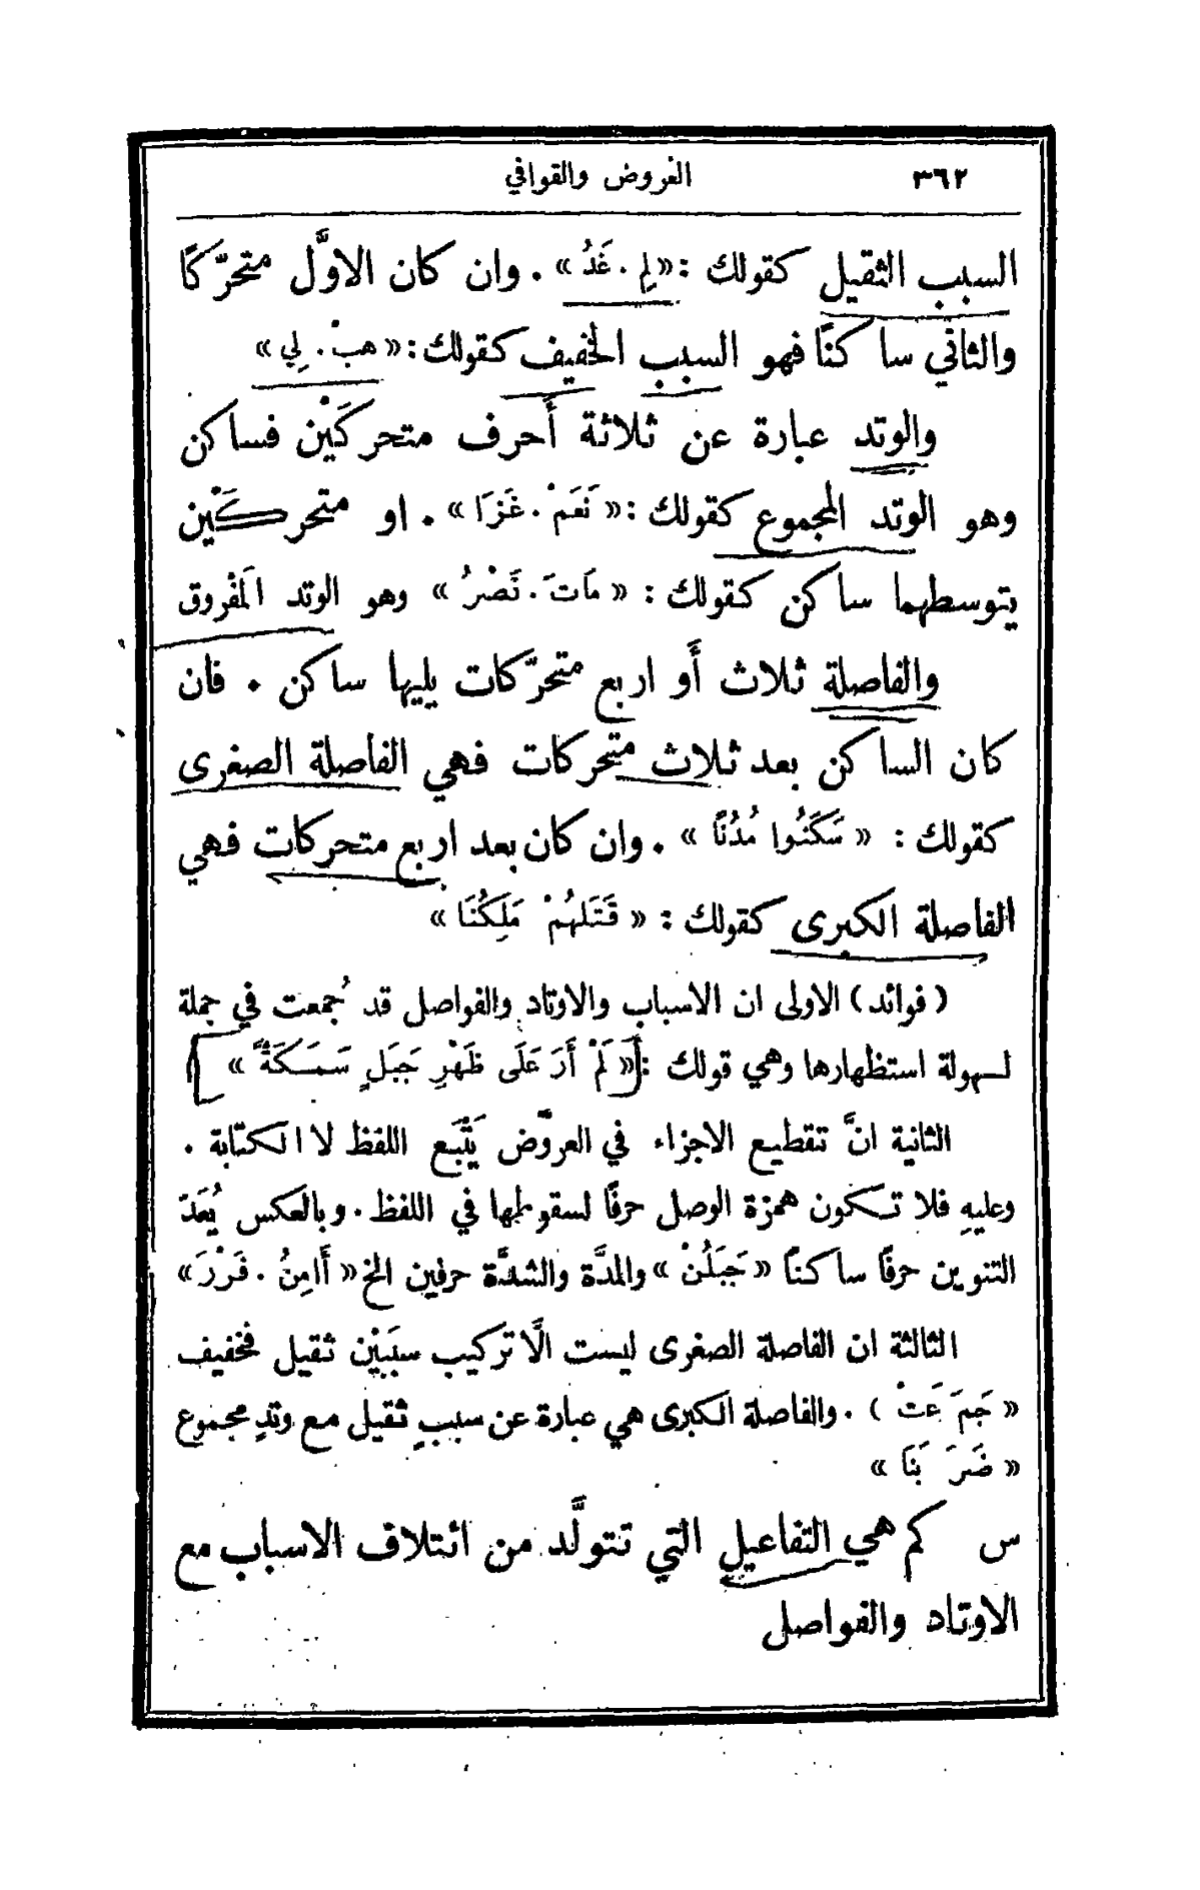 ٣٦٢ العروض والقوافي
السبب الثقيل كقولك :«لِمِ . غَدُ» . وان كان الاوَّل متحرّكًا
والثاني ساكنًا فهو السبب الخفيف كقولك :«هبْ . لِي»
والوتد عبارة عن ثلاثة أَحرف متحركَيْن فساكن
وهو الوتد المجموع كقولك :«نَعَمْ . غَزَا» . او متحركَيْن
يتوسطهما ساكن كقولك : «مَاتَ . نَصْرُ» وهو الوتد المَفْروق
والفاصلة ثلاث أَو اربع متحرّكات يليها ساكن . فان
كان الساكن بعد ثلاث متحركات فهي الفاصلة الصغرى
كقولك : «سَكَنُوا مُدُنًا» . وان كان بعد اربع متحركات فهي
الفاصلة الكبرى كقولك : «قَتَلَهُمْ مَلِكُنَا»
(فوائد) الاولى ان الاسباب والاوتاد والفواصل قد جُمعت في جملة
لسهولة استظهارها وهي قولك :«لَمْ أَرَ عَلَى ظَهْرِ جَبَلٍ سَمَكَةً»
الثانية انَّ تقطيع الاجزاء في العروض يَتَّبَع اللفظ لا الكتابة .
وعليهِ فلا تكون همزة الوصل حرفًا لسقوطها في اللفظ . وبالعكس يُعَدّ
التنوين حرفًا ساكنًا «جَبَلُنْ» والمدَّة والشدَّة حرفين الخ «أَامِنُ . فَرْرَ»
الثالثة ان الفاصلة الصغرى ليست الَّا تركيب سبَبَيْن ثقيل فخفيف
«جَمَ عَتْ ) . والفاصلة الكبرى هي عبارة عن سببٍ ثقيل مع وتدٍ مجموع
«ضَرَ بَنَا»
س كم هي التفاعيل التي تتولَّد من ائتلاف الاسباب مع
الاوتاد والفواصل